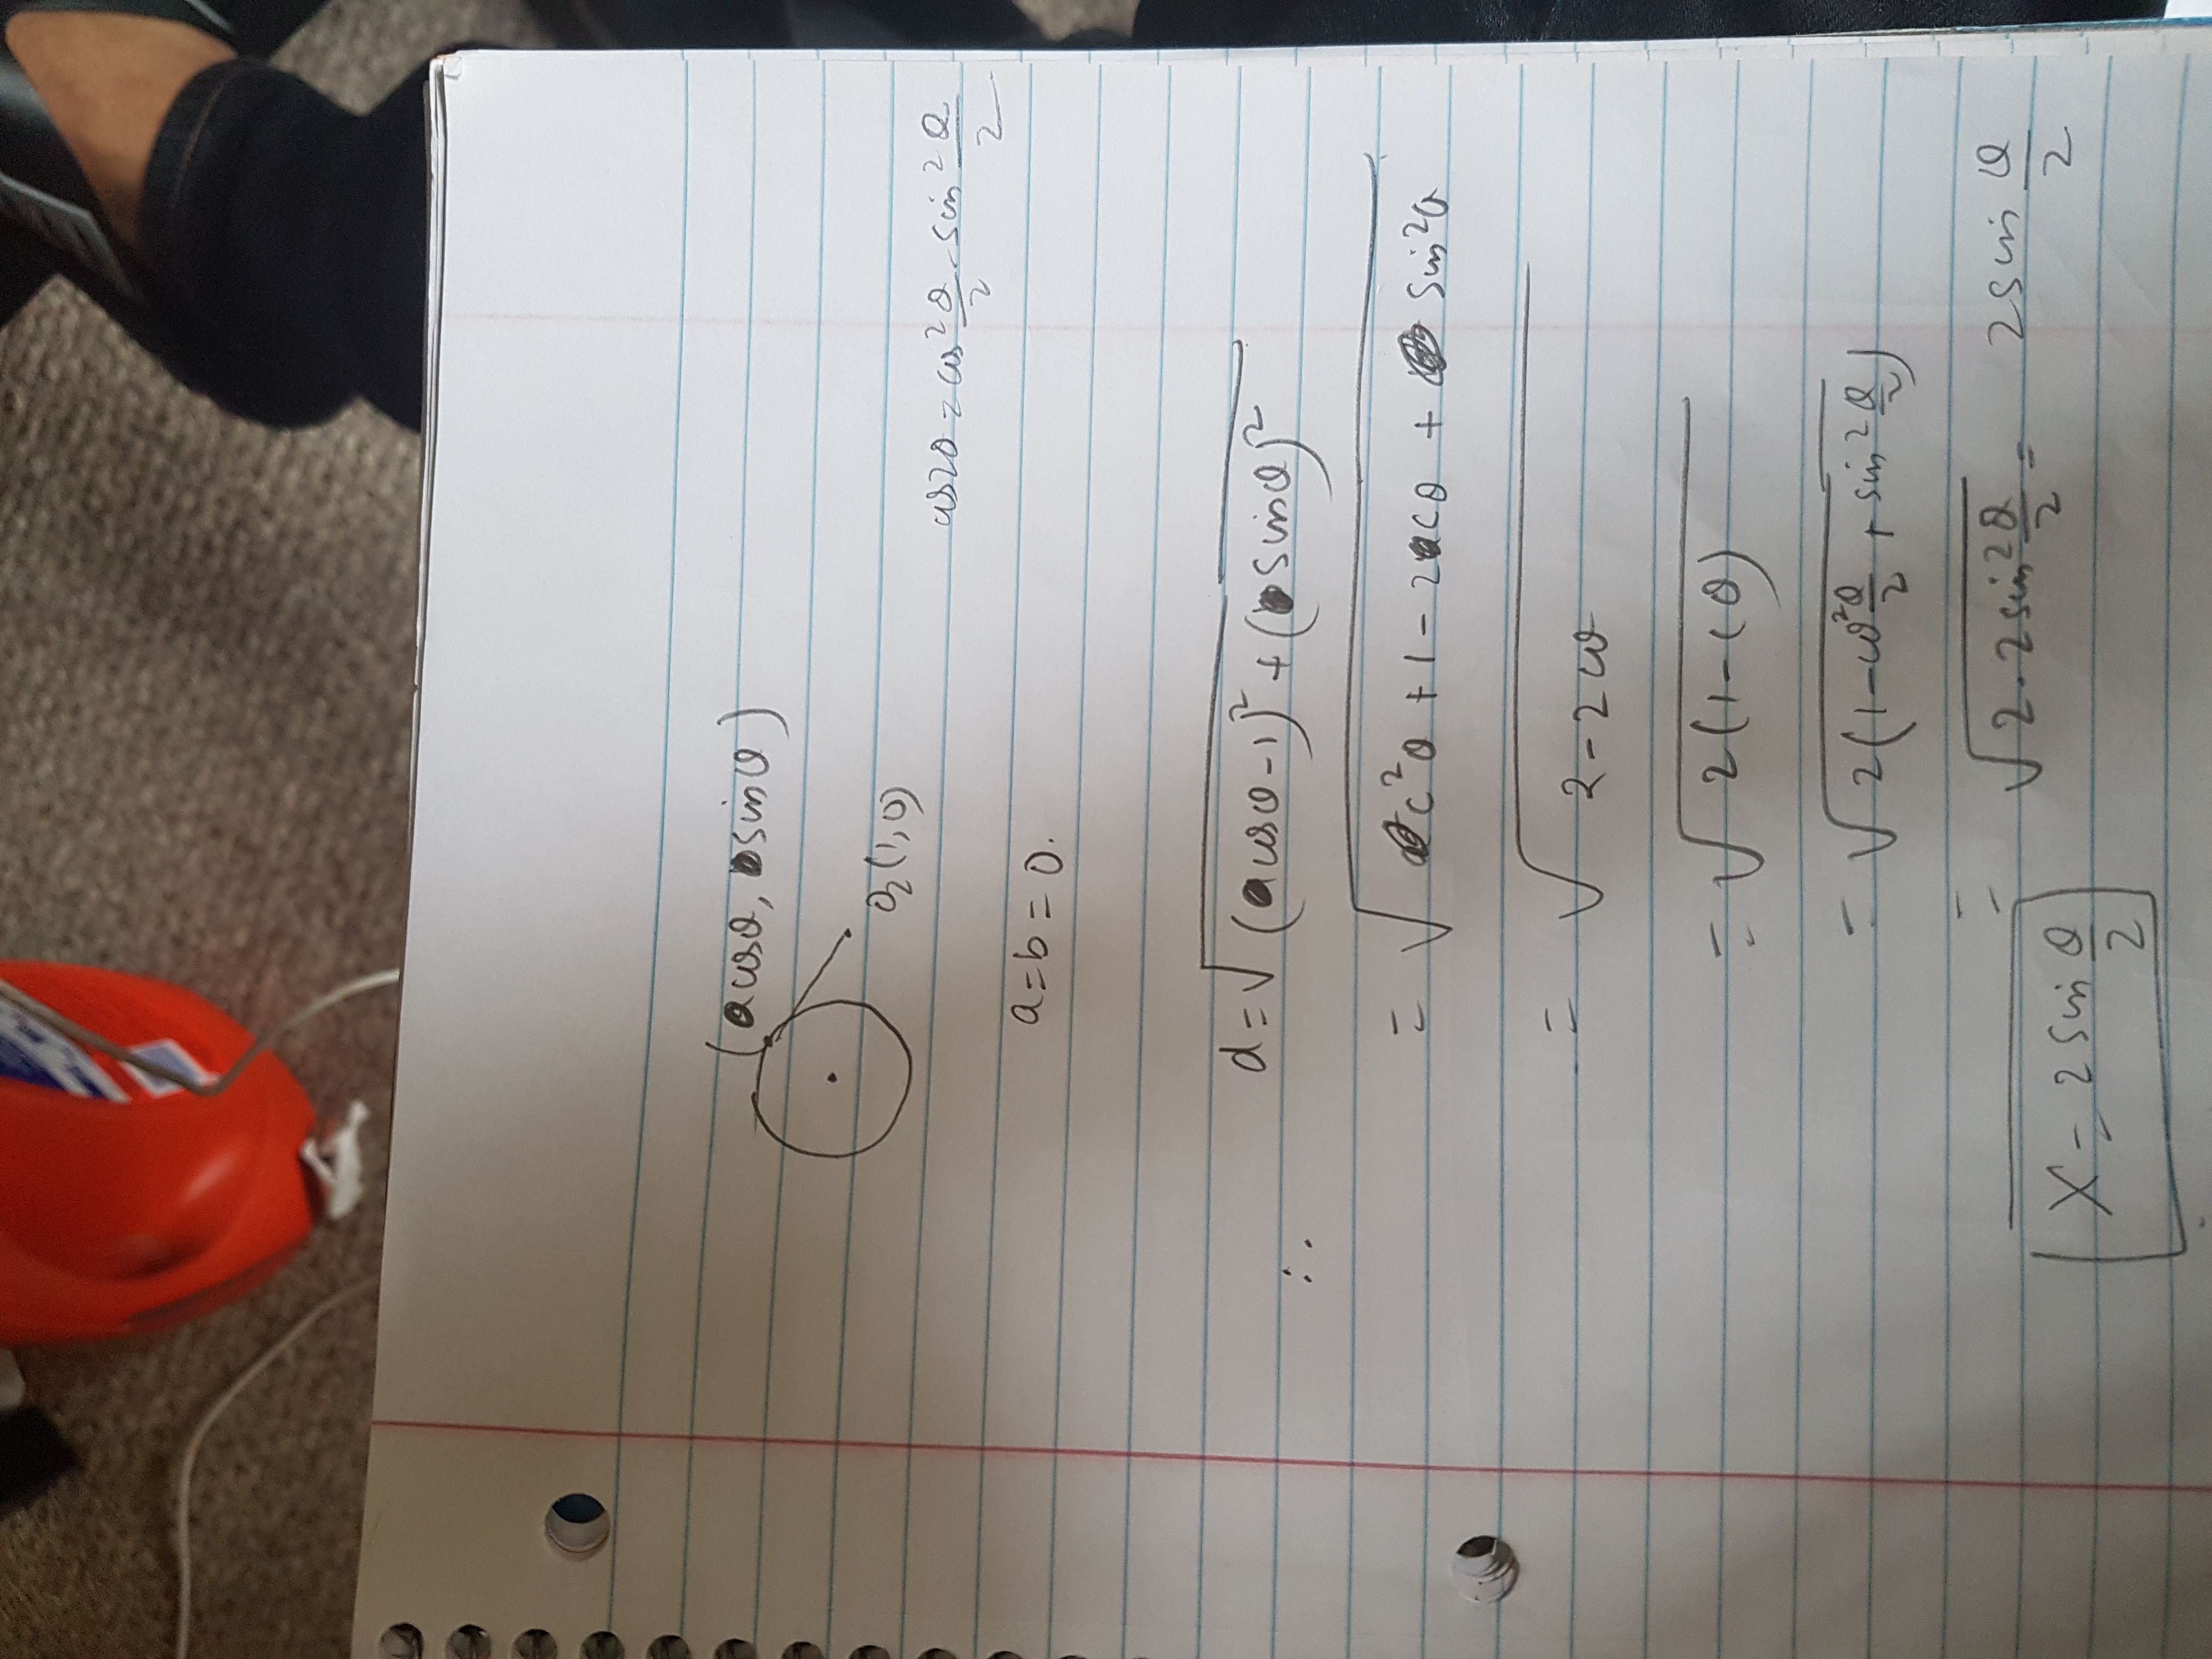 (a cosθ, b sinθ)
O₂(1,0)
cos2θ = cos²θ/2 - sin²θ/2
a=b=0.
∴ d=√((a cosθ-1)² + (b sinθ)²)
= √(c²θ + 1 - 2cθ + sin²θ)
= √(2-2cθ)
= √(2(1-cθ))
= √(2(1-cos²θ/2 + sin²θ/2))
= √(2.2sin²θ/2) = 2sin θ/2
X = 2 sin θ/2